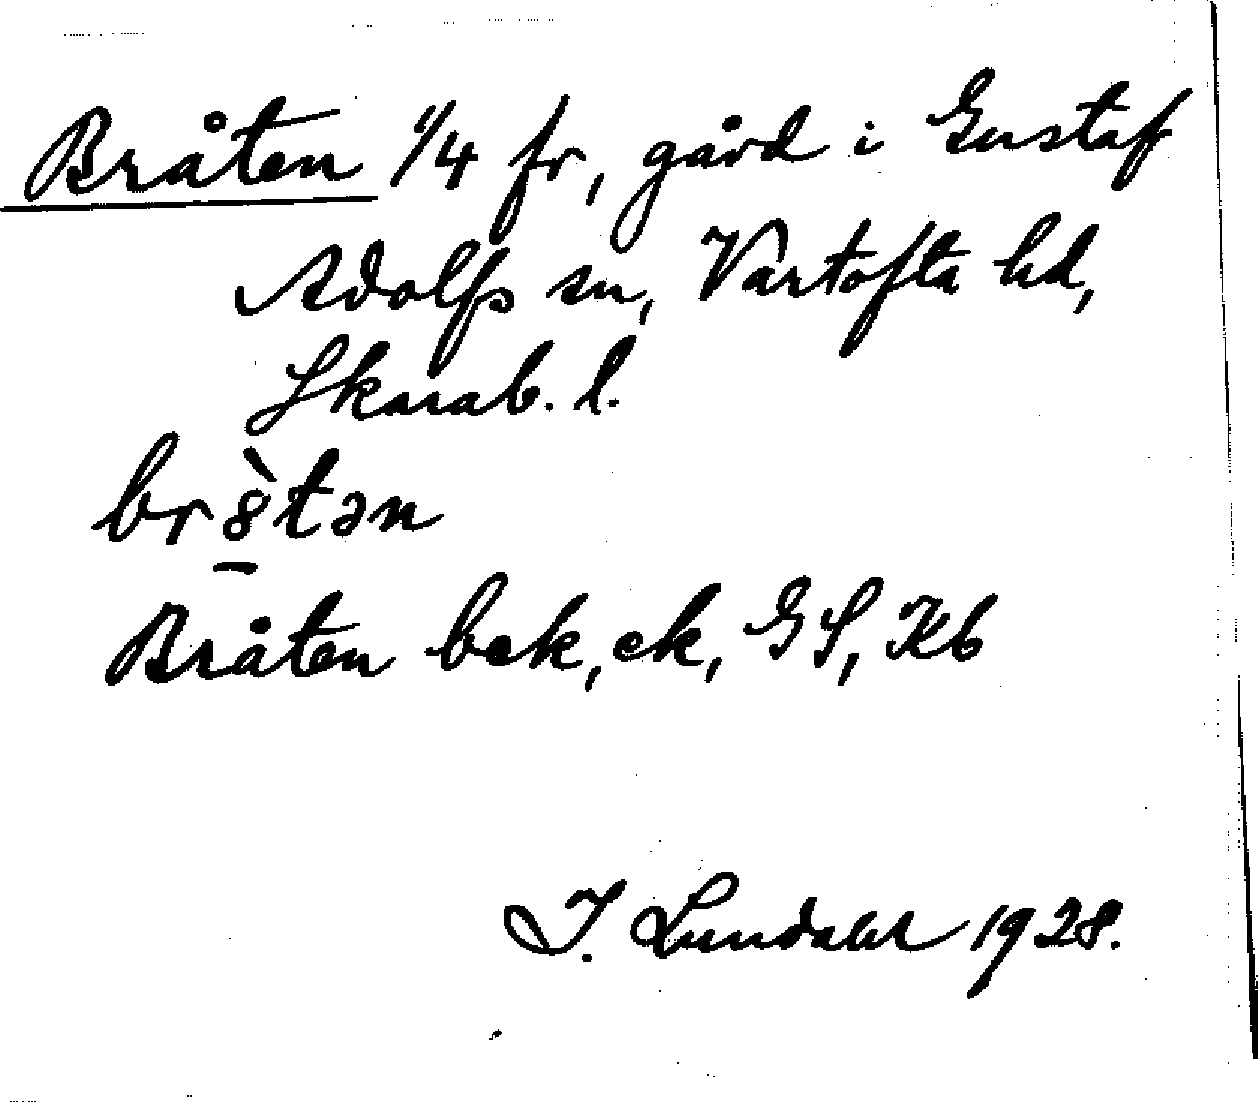 Bråten 1/4 fr, gård i Gustaf
Adolfs sn, Vartofta hd,
Skarab. l.
br8̠̀tən
Bråten bek, ek, GS, Kb
I. Lundahl 1928.